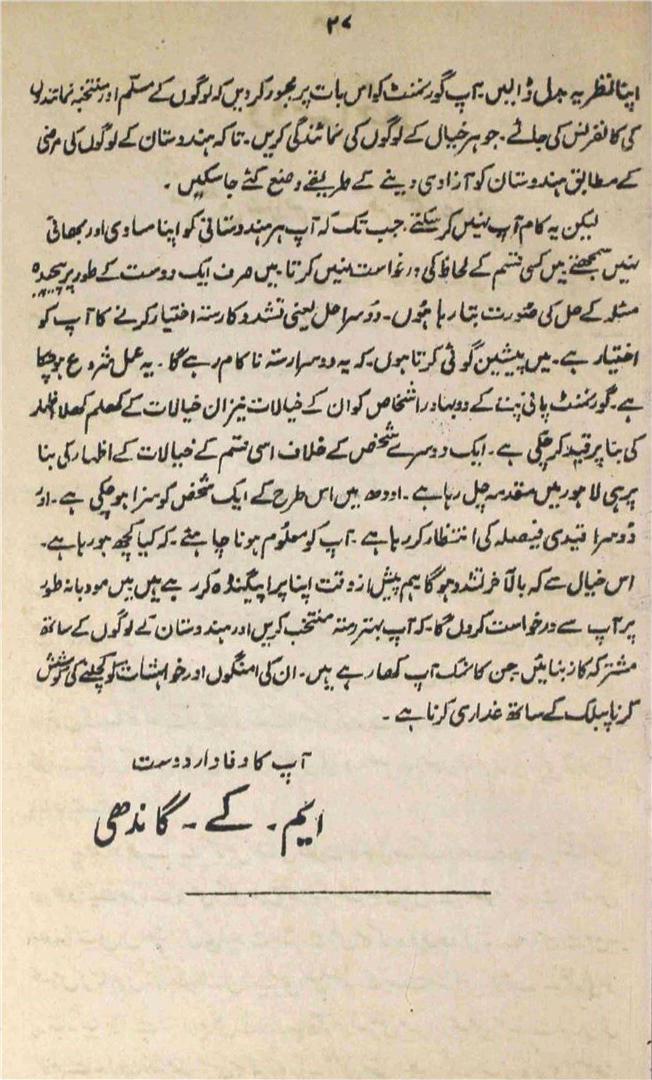 ۲۷
اپنا نظریہ بدل ڈالیں۔ آپ گورنمنٹ کو اس بات پر مجبور کردیں کہ لوگوں کے مسلّم اور منتخبہ نمائندوں
کی کانفرنس کی جائے۔ جو ہر خیال کے لوگوں کی نمائندگی کریں۔ تاکہ ہندوستان کے لوگوں کی مرضی
کے مطابق ہندوستان کو آزادی دینے کے طریقے وضع کئے جا سکیں۔
لیکن یہ کام آپ نہیں کر سکتے۔ جب تک کہ آپ ہر ہندوستانی کو اپنا مساوی اور بھائی
نہیں سمجھتے میں کسی قسم کے لحاظ کی درخواست نہیں کرتا۔ میں صرف ایک دوست کے طور پر پیچیدہ
مسئلہ کے حل کی صورت بتا رہا ہوں۔ دوسرا حل یعنی تشدد کا رستہ اختیار کرنے کا آپ کو
اختیار ہے۔ میں پیشین گوئی کرتا ہوں۔ کہ یہ دوسرا رستہ ناکام رہے گا۔ یہ عمل شروع ہو چکا
ہے۔ گورنمنٹ پانی پت کے دو بہادر اشخاص کو ان کے خیالات نیز ان خیالات کے کھلم کھلا اظہار
کی بنا پر قید کر چکی ہے۔ ایک دوسرے شخص کے خلاف اسی قسم کے خیالات کے اظہار کی بنا
پر ہی لاہور میں مقدمہ چل رہا ہے۔ اودھ میں اس طرح کے ایک شخص کو سزا ہو چکی ہے۔ اور
دوسرا قیدی فیصلہ کی انتظار کر رہا ہے۔ آپ کو معلوم ہونا چاہئے۔ کہ کیا کچھ ہو رہا ہے۔
اس خیال سے کہ بالآخر تشدد ہوگا ہم پیش از وقت اپنا پراپیگنڈہ کر رہے ہیں میں مودبانہ طور
پر آپ سے درخواست کروں گا۔ کہ آپ بہتر رستہ منتخب کریں اور ہندوستان کے لوگوں کے ساتھ
مشترکہ کاز بنائیں جن کا نمک آپ کھا رہے ہیں۔ ان کی امنگوں اور خواہشات کو کچلنے کی کوشش
کرنا پبلک کے ساتھ غداری کرنا ہے۔
آپ کا وفادار دوست
ایم۔ کے۔ گاندھی